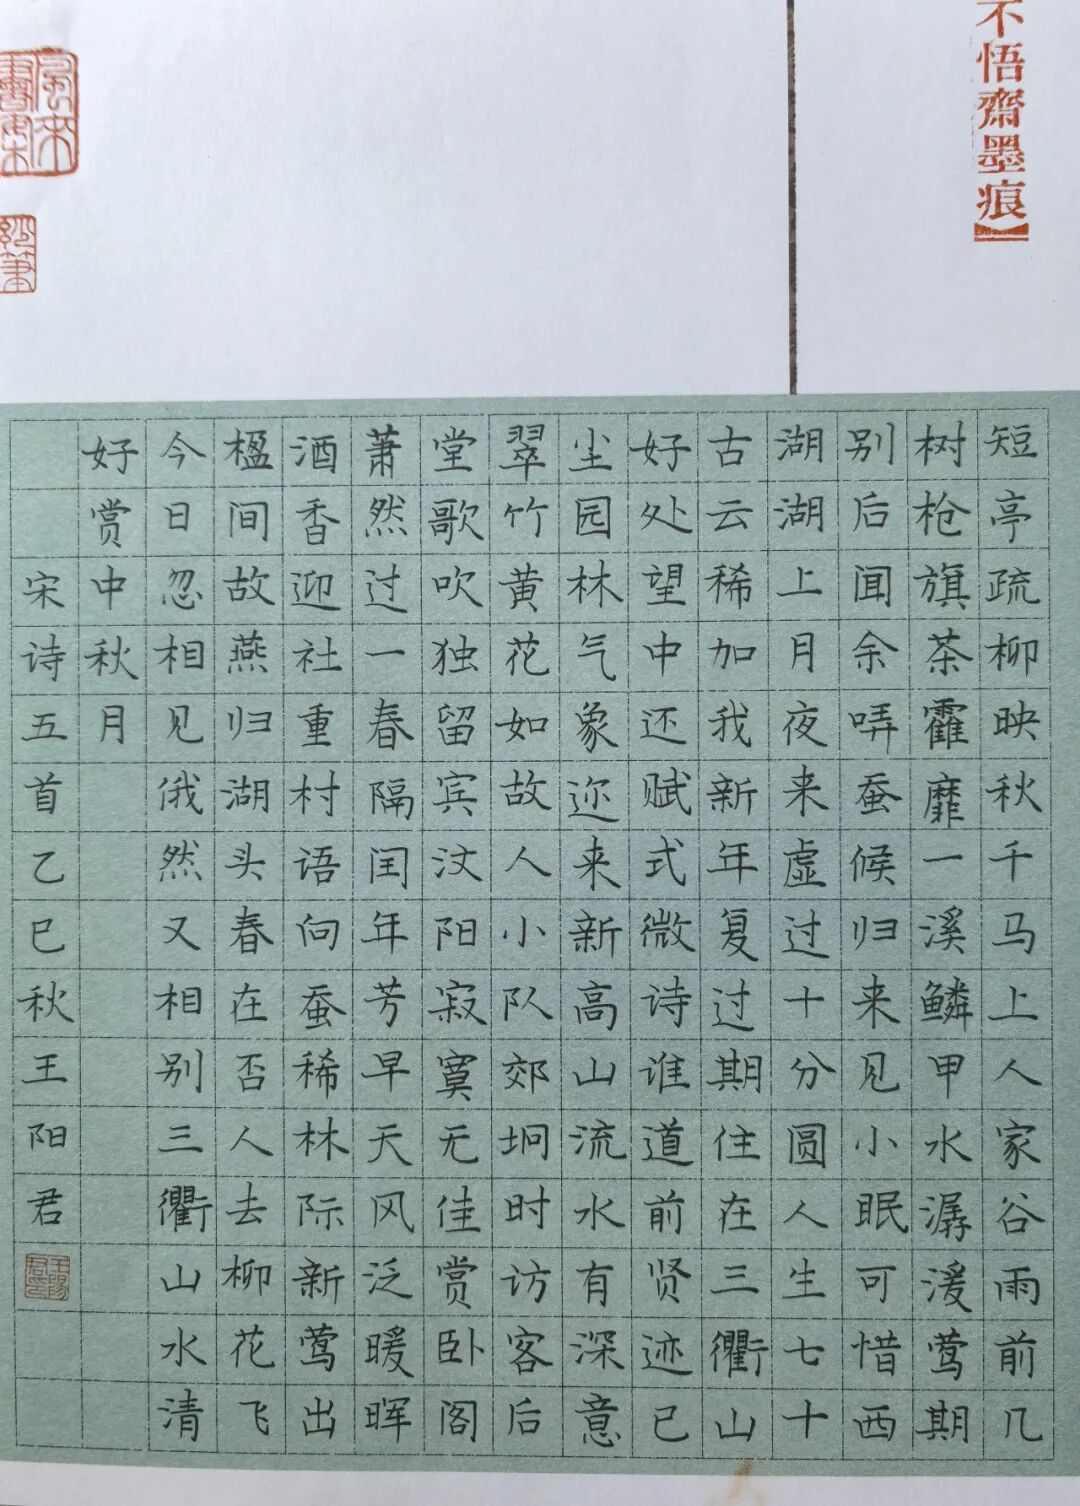 不悟齋墨痕】
短亭疏柳映秋千马上人家谷雨前几
树枪旗茶靃靡一溪鳞甲水潺湲莺期
别后闻余哢蚕候归来见小眠可惜西
湖湖上月夜来虚过十分圆人生七十
古云稀加我新年复过期住在三衢山
好处望中还赋式微诗谁道前贤迹已
尘园林气象迩来新高山流水有深意
翠竹黄花如故人小队郊坰时访客后
堂歌吹独留宾汶阳寂寞无佳赏卧阁
萧然过一春隔闰年芳早天风泛暖晖
酒香迎社重村语向蚕稀林际新莺出
楹间故燕归湖头春在否人去柳花飞
今日忽相见俄然又相别三衢山水清
好赏中秋月
宋诗五首乙巳秋王阳君